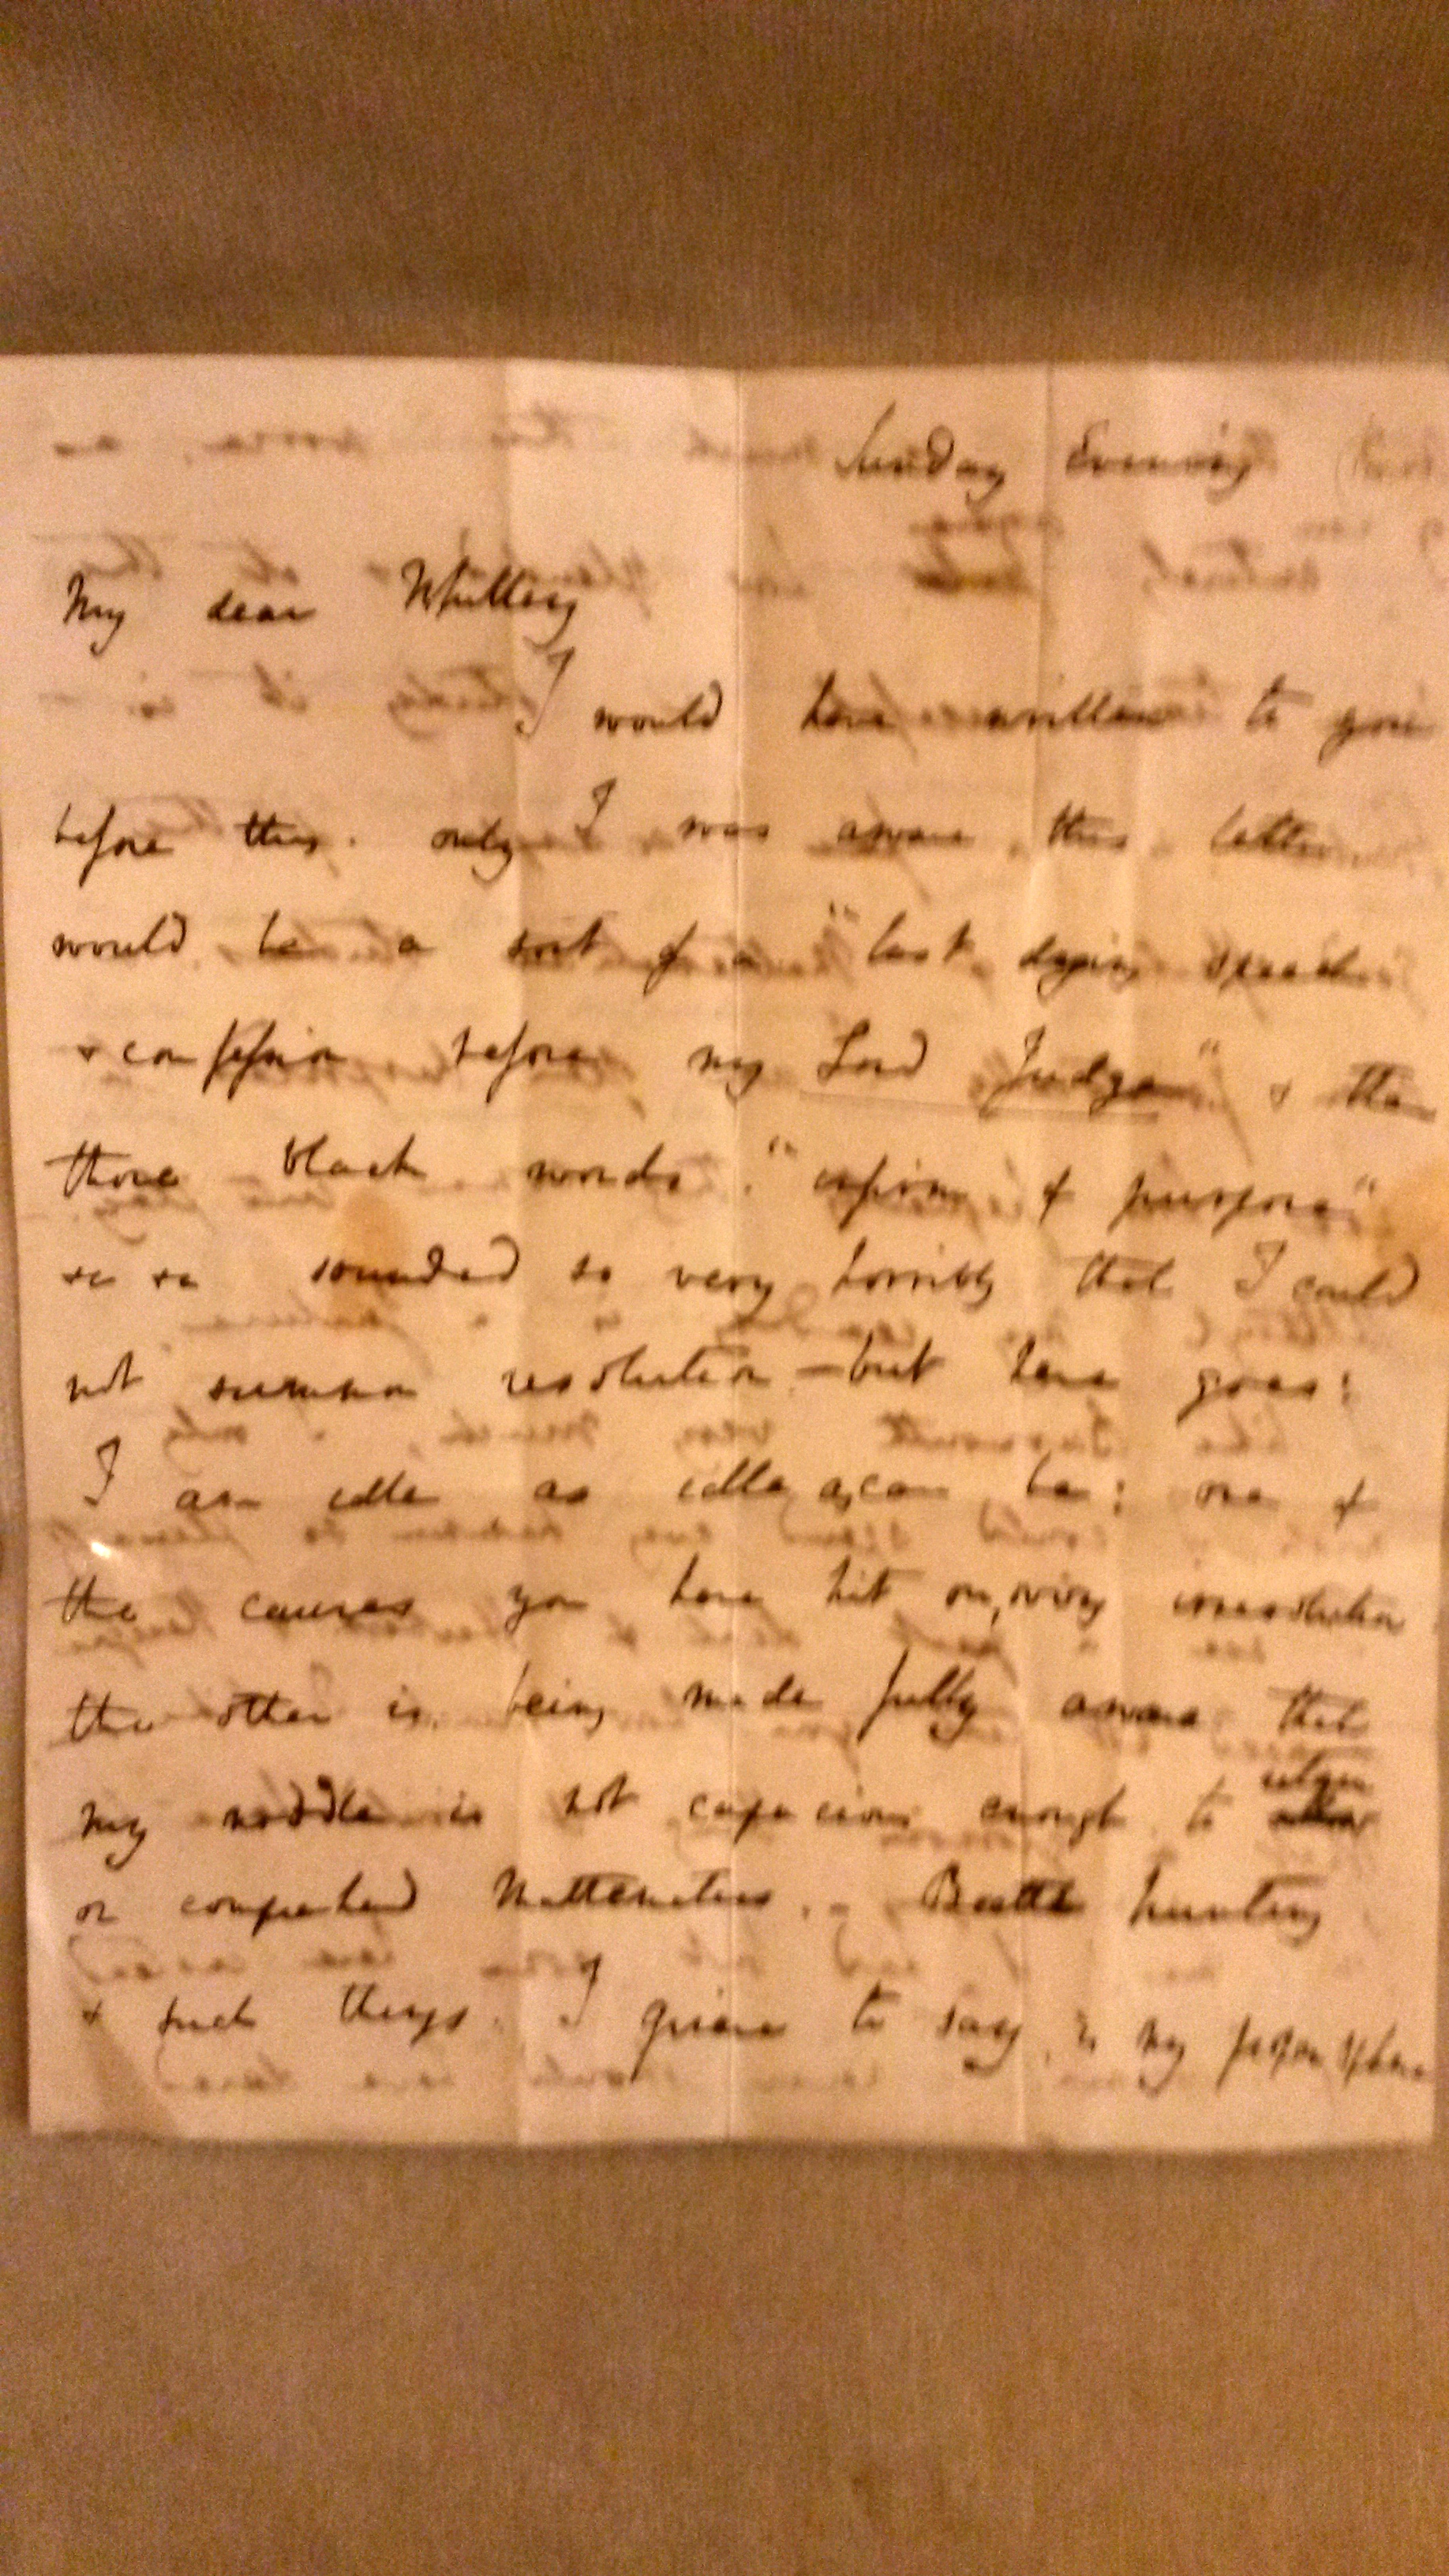 Sunday Evening
My dear Whitley
I would have written to you
before this. only I was aware this letter
would be a sort of a "last dying speech
& confession before my Lord Judge" & then
those black words. "infirm of purpose"
&c &c sounded so very horribly that I could
not summon resolution — but here goes:
I am idle as idle can be: one of
the causes you have hit on, viz irresolution
the other is being made fully aware that
my noddle is not capacious enough to retain
or comprehend Mathematics. — Beetle hunting
& such things. I grieve to say, is my proper sphere